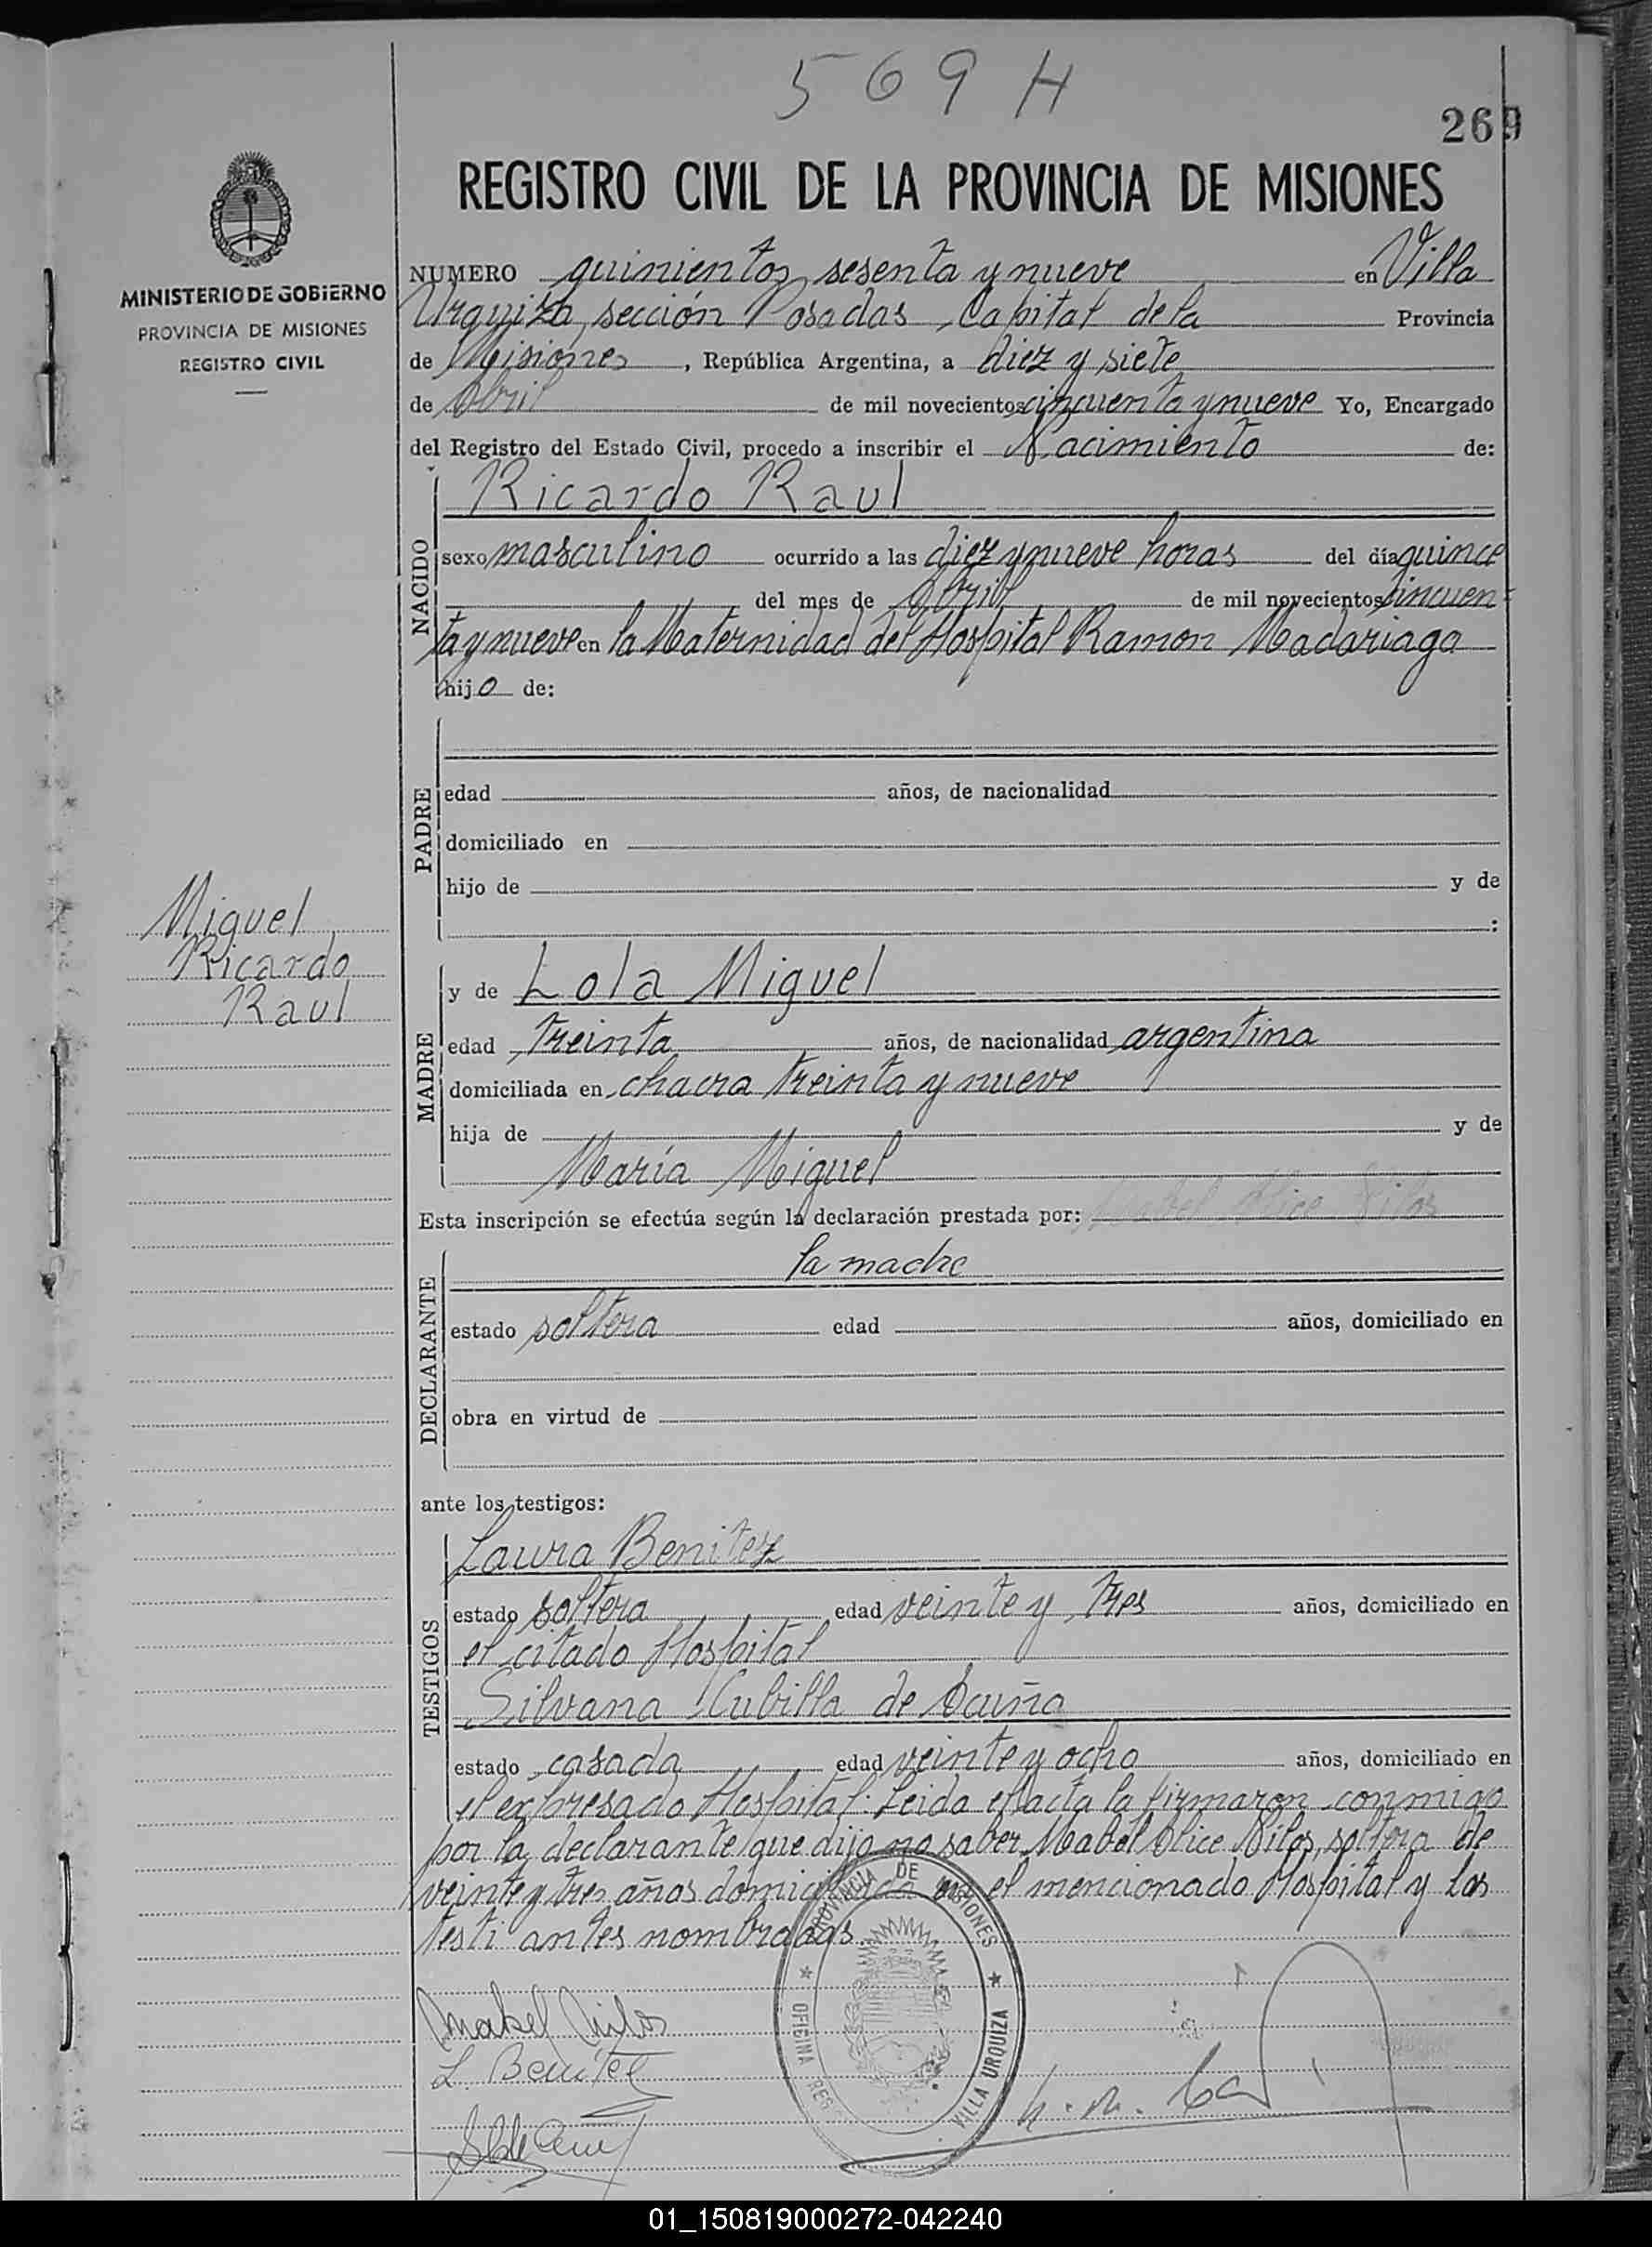 569 H
269
REGISTRO CIVIL DE LA PROVINCIA DE MISIONES
MINISTERIO DE GOBIERNO
PROVINCIA DE MISIONES
REGISTRO CIVIL
NUMERO quinientos sesenta y nueve en Villa
Urquiza, sección Posadas, Capital de la Provincia
de Misiones, República Argentina, a diez y siete
de Abril de mil novecientos cincuenta y nueve Yo, Encargado
del Registro del Estado Civil, procedo a inscribir el Nacimiento de:
NACIDO
Ricardo Raul
sexo masculino ocurrido a las diez y nueve horas del día quince
del mes de Abril de mil novecientos cincuen-
ta y nueve en la Maternidad del Hospital Ramon Madariaga
hijo de:
PADRE
edad años, de nacionalidad
domiciliado en
hijo de y de
:
Miguel
Ricardo
Raul
MADRE
y de Lola Miguel
edad treinta años, de nacionalidad argentina
domiciliada en chacra treinta y nueve
hija de y de
María Miguel
Esta inscripción se efectúa según la declaración prestada por: Mabel Alice
DECLARANTE
la madre
estado soltera edad años, domiciliado en
obra en virtud de
ante los testigos:
TESTIGOS
Laura Benitez
estado soltera edad veinte y tres años, domiciliado en
el citado Hospital
Silvana Cubilla de
estado casada edad veinte y ocho años, domiciliado en
el expresado Hospital: Leida el acta la firmaron conmigo
por la declarante que dijo no saber, Mabel Alice soltera de
veinte y tres años domiciliada en el mencionado Hospital y los
testi antes nombradas.
PROVINCIA DE MISIONES
OFICINA RES
VILLA URQUIZA
Mabel
L. Benitez
01_150819000272-042240